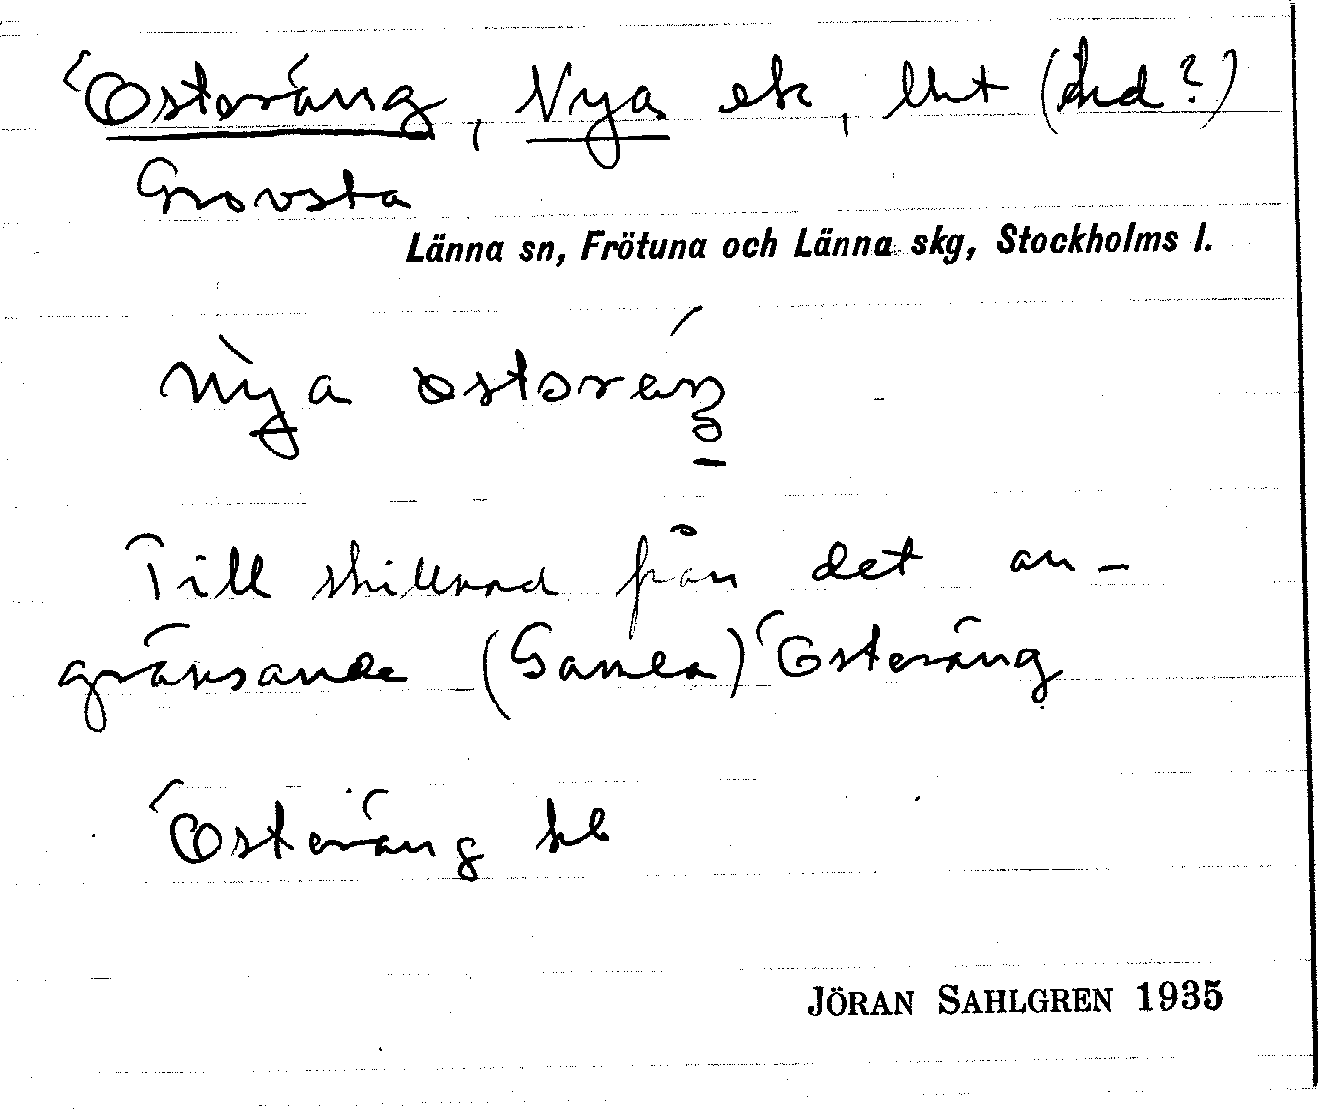 Österäng, Nya ek, lht (hd?)
Grovsta
Länna sn, Frötuna och Länna skg, Stockholms l.
nỳa østəráŋ
Till skillnad från det an-
gränsande (Gamla) Österäng
Österäng hl
JÖRAN SAHLGREN 1935